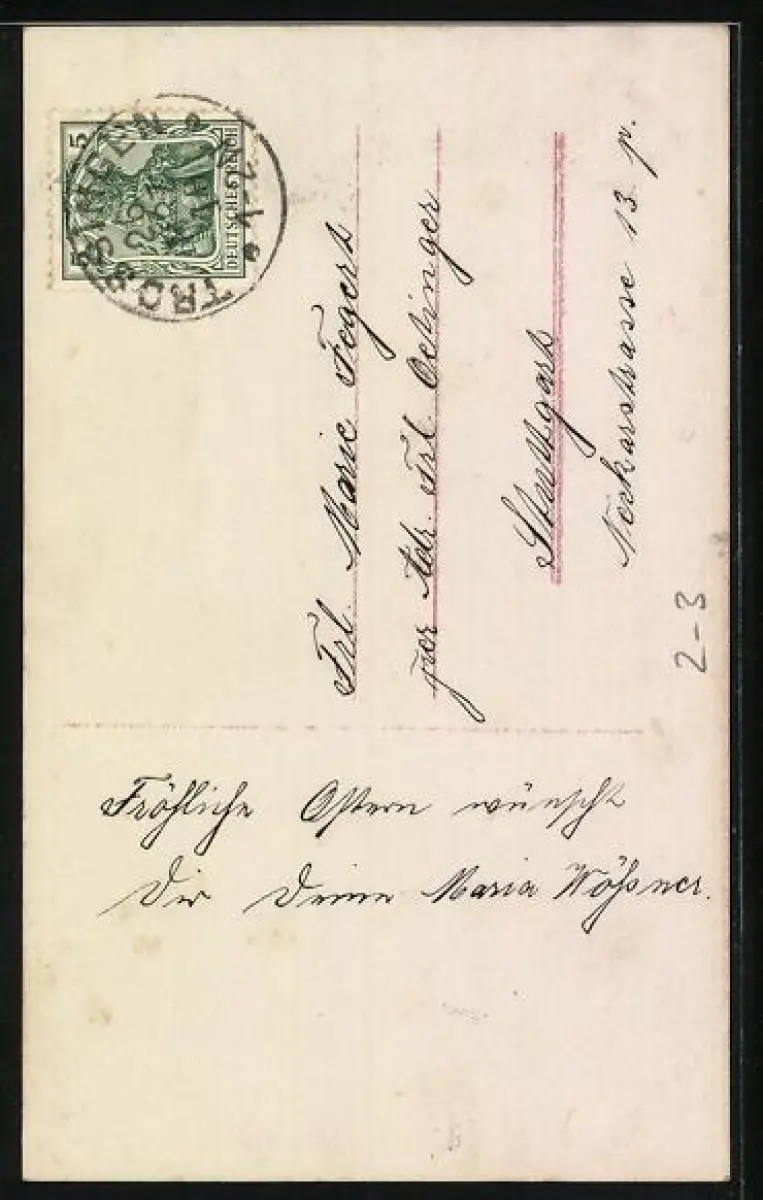 5 5
DEUTSCHES REICH
TROSSINGEN
Frl. Marie Fegert
per Adr. Frl. Oetinger
Stuttgart
Neckarstrasse 13 p.
2-3
Fröhliche Ostern wünscht
Dir Deine Maria Wößner.